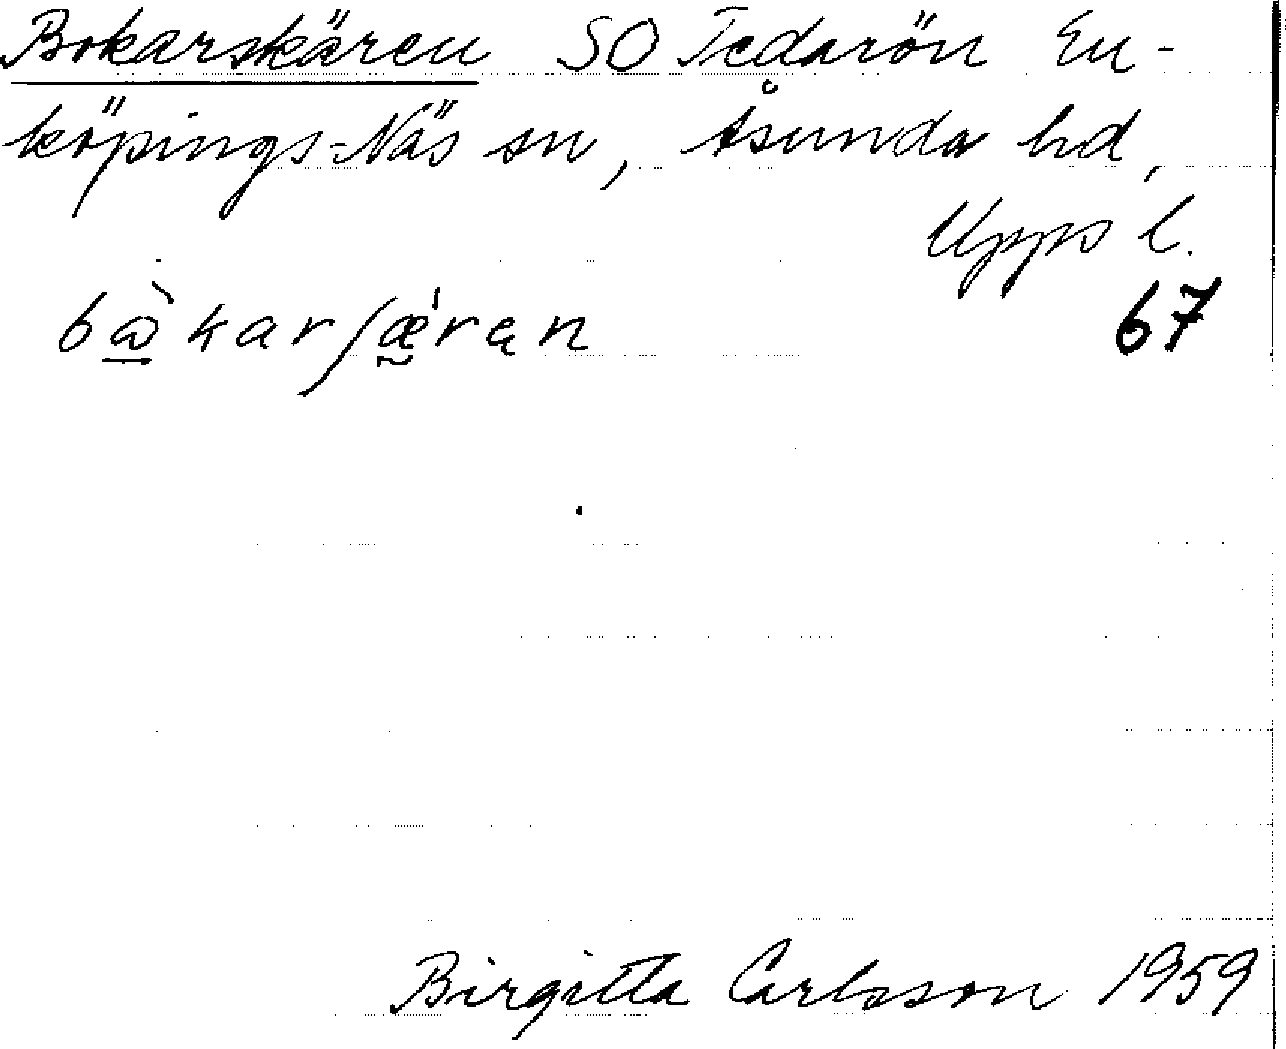 Bokarskären SO Tedarön En-
köpings-Näs sn, Åsunda hd,
Upps l.
67
Birgitta Carlsson 1959